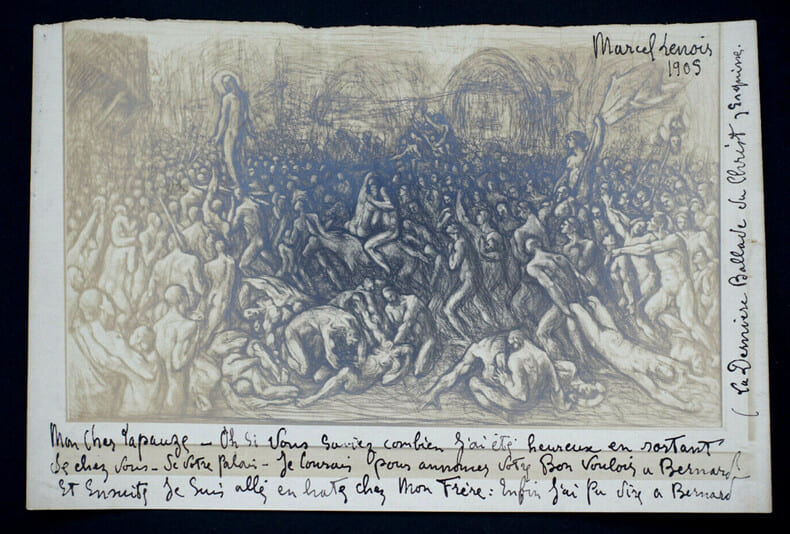 Marcel Lenoir
1905
(La Dernière Ballade du Christ, Esquisse.
Mon Cher Lapauze – Oh Si Vous Saviez combien j'ai été heureux en sortant
de chez vous – de votre Palais – Je Courais pour annoncer votre Bon Vouloir a Bernard
Et Ensuite Je Suis allé en hate chez Mon Frère : Enfin j'ai Pu dire a Bernard